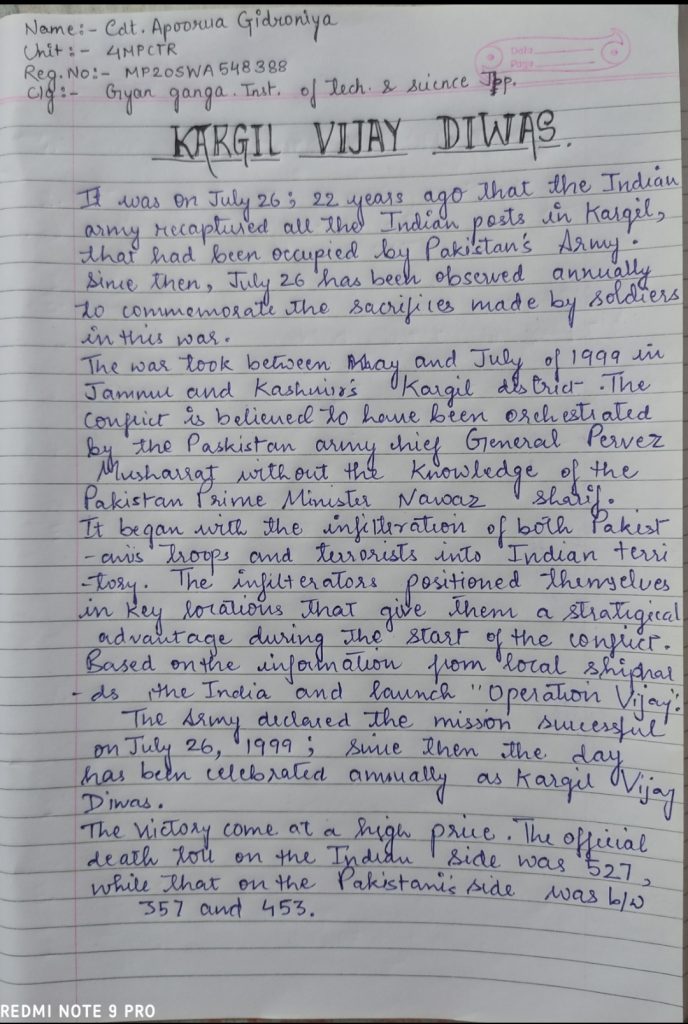 Name:- Cdt. Apoorva Gidroniya
Unit:- 4MPCTR
Reg.No:- MP20SWA548388
Clg:- Gyan ganga. Inst. of Tech. & science Jpp.
Date
Page
KARGIL VIJAY DIWAS.
It was on July 26; 22 years ago that the Indian
army recaptured all the Indian posts in Kargil,
that had been occupied by Pakistan's Army.
Since then, July 26 has been observed annually
to commemorate the sacrifices made by soldiers
in this war.
The war took between May and July of 1999 in
Jammu and Kashmir's Kargil district. The
conflict is believed to have been orchestrated
by the Paskistan army chief General Pervez
Musharraf without the knowledge of the
Pakistan Prime Minister Nawaz Sharif.
It began with the infilteration of both Pakist
-anis troops and terrorists into Indian terri
-tory. The infilterators positioned themselves
in key locations that give them a stratigical
advantage during the start of the conflict.
Based on the information from local shiphar
-ds, the India and launch "Operation Vijay".
The Army declared the mission successful
on July 26, 1999; since then the day
has been celebrated annually as Kargil Vijay
Diwas.
The victory come at a high price. The official
death toll on the Indian side was 527,
while that on the Pakistani's side was b/w
357 and 453.
REDMI NOTE 9 PRO